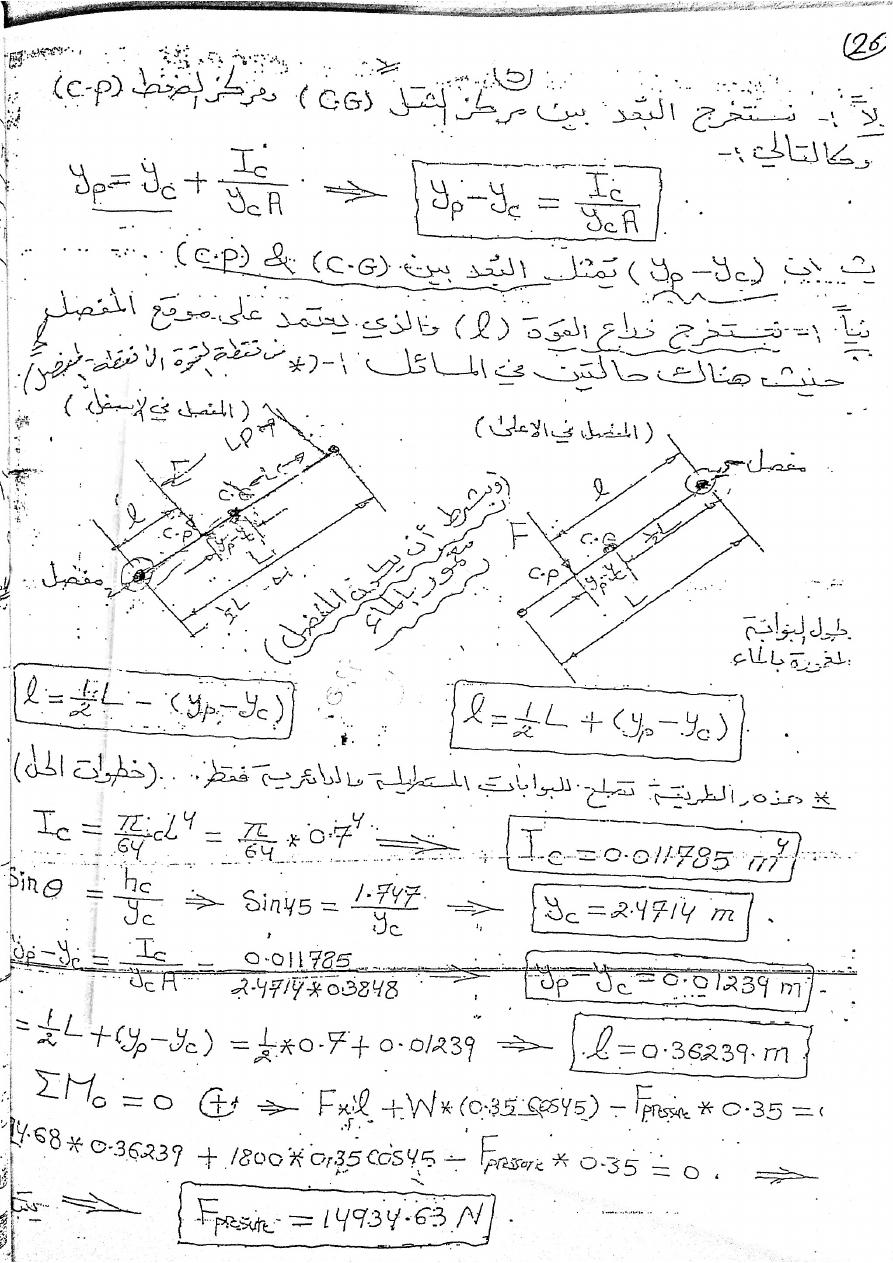 (26
لاً :- نستخرج البُعد بين مركز الثقل (C.G) ومركز الضغط (C.P)
وكالتالي :-
yp = yc + Ic/(yc A) ⇒ yp - yc = Ic/(yc A)
يث ان (yp - yc) تمثل البُعد بين (C.G) & (C.P)
نياً :- نستخرج ذراع القوة (l) والذي يعتمد على موقع المفصل
حيث هناك حالتين في المسائل :- (* من نقطة القوة الى نقطة المفصل)
(المفصل في الاسفل)
(المفصل في الاعلى)
مفصل
l
F
C.G
C.P
yp-yc
½L
L
مفصل
l
C.G
C.P
yp-yc
½L
L
(وبشرط أن يكون المفصل
مغمور بالماء)
طول البوابة
المغمورة بالماء
l = ½L - (yp - yc)
l = ½L + (yp - yc)
* هذه الطريقة تصلح للبوابات المستطيلة والدائرية فقط. (خطوات الحل)
Ic = π/64 d⁴ = π/64 * 0.7⁴ ⇒ Ic = 0.011785 m⁴
Sinθ = hc/yc ⇒ Sin45 = 1.747/yc ⇒ yc = 2.4714 m .
yp - yc = Ic/(yc A) = 0.011785/(2.4714*0.3848) ⇒ yp - yc = 0.01239 m .
= ½L + (yp - yc) = ½*0.7 + 0.01239 ⇒ l = 0.36239 m
ΣMo = 0 ⇒ F*l + W*(0.35 Cos45) - Fpressure * 0.35 =
4.68 * 0.36239 + 1800 * 0.35 Cos45 - Fpressure * 0.35 = 0 . ⇒
⇒ Fpressure = 14934.63 N .